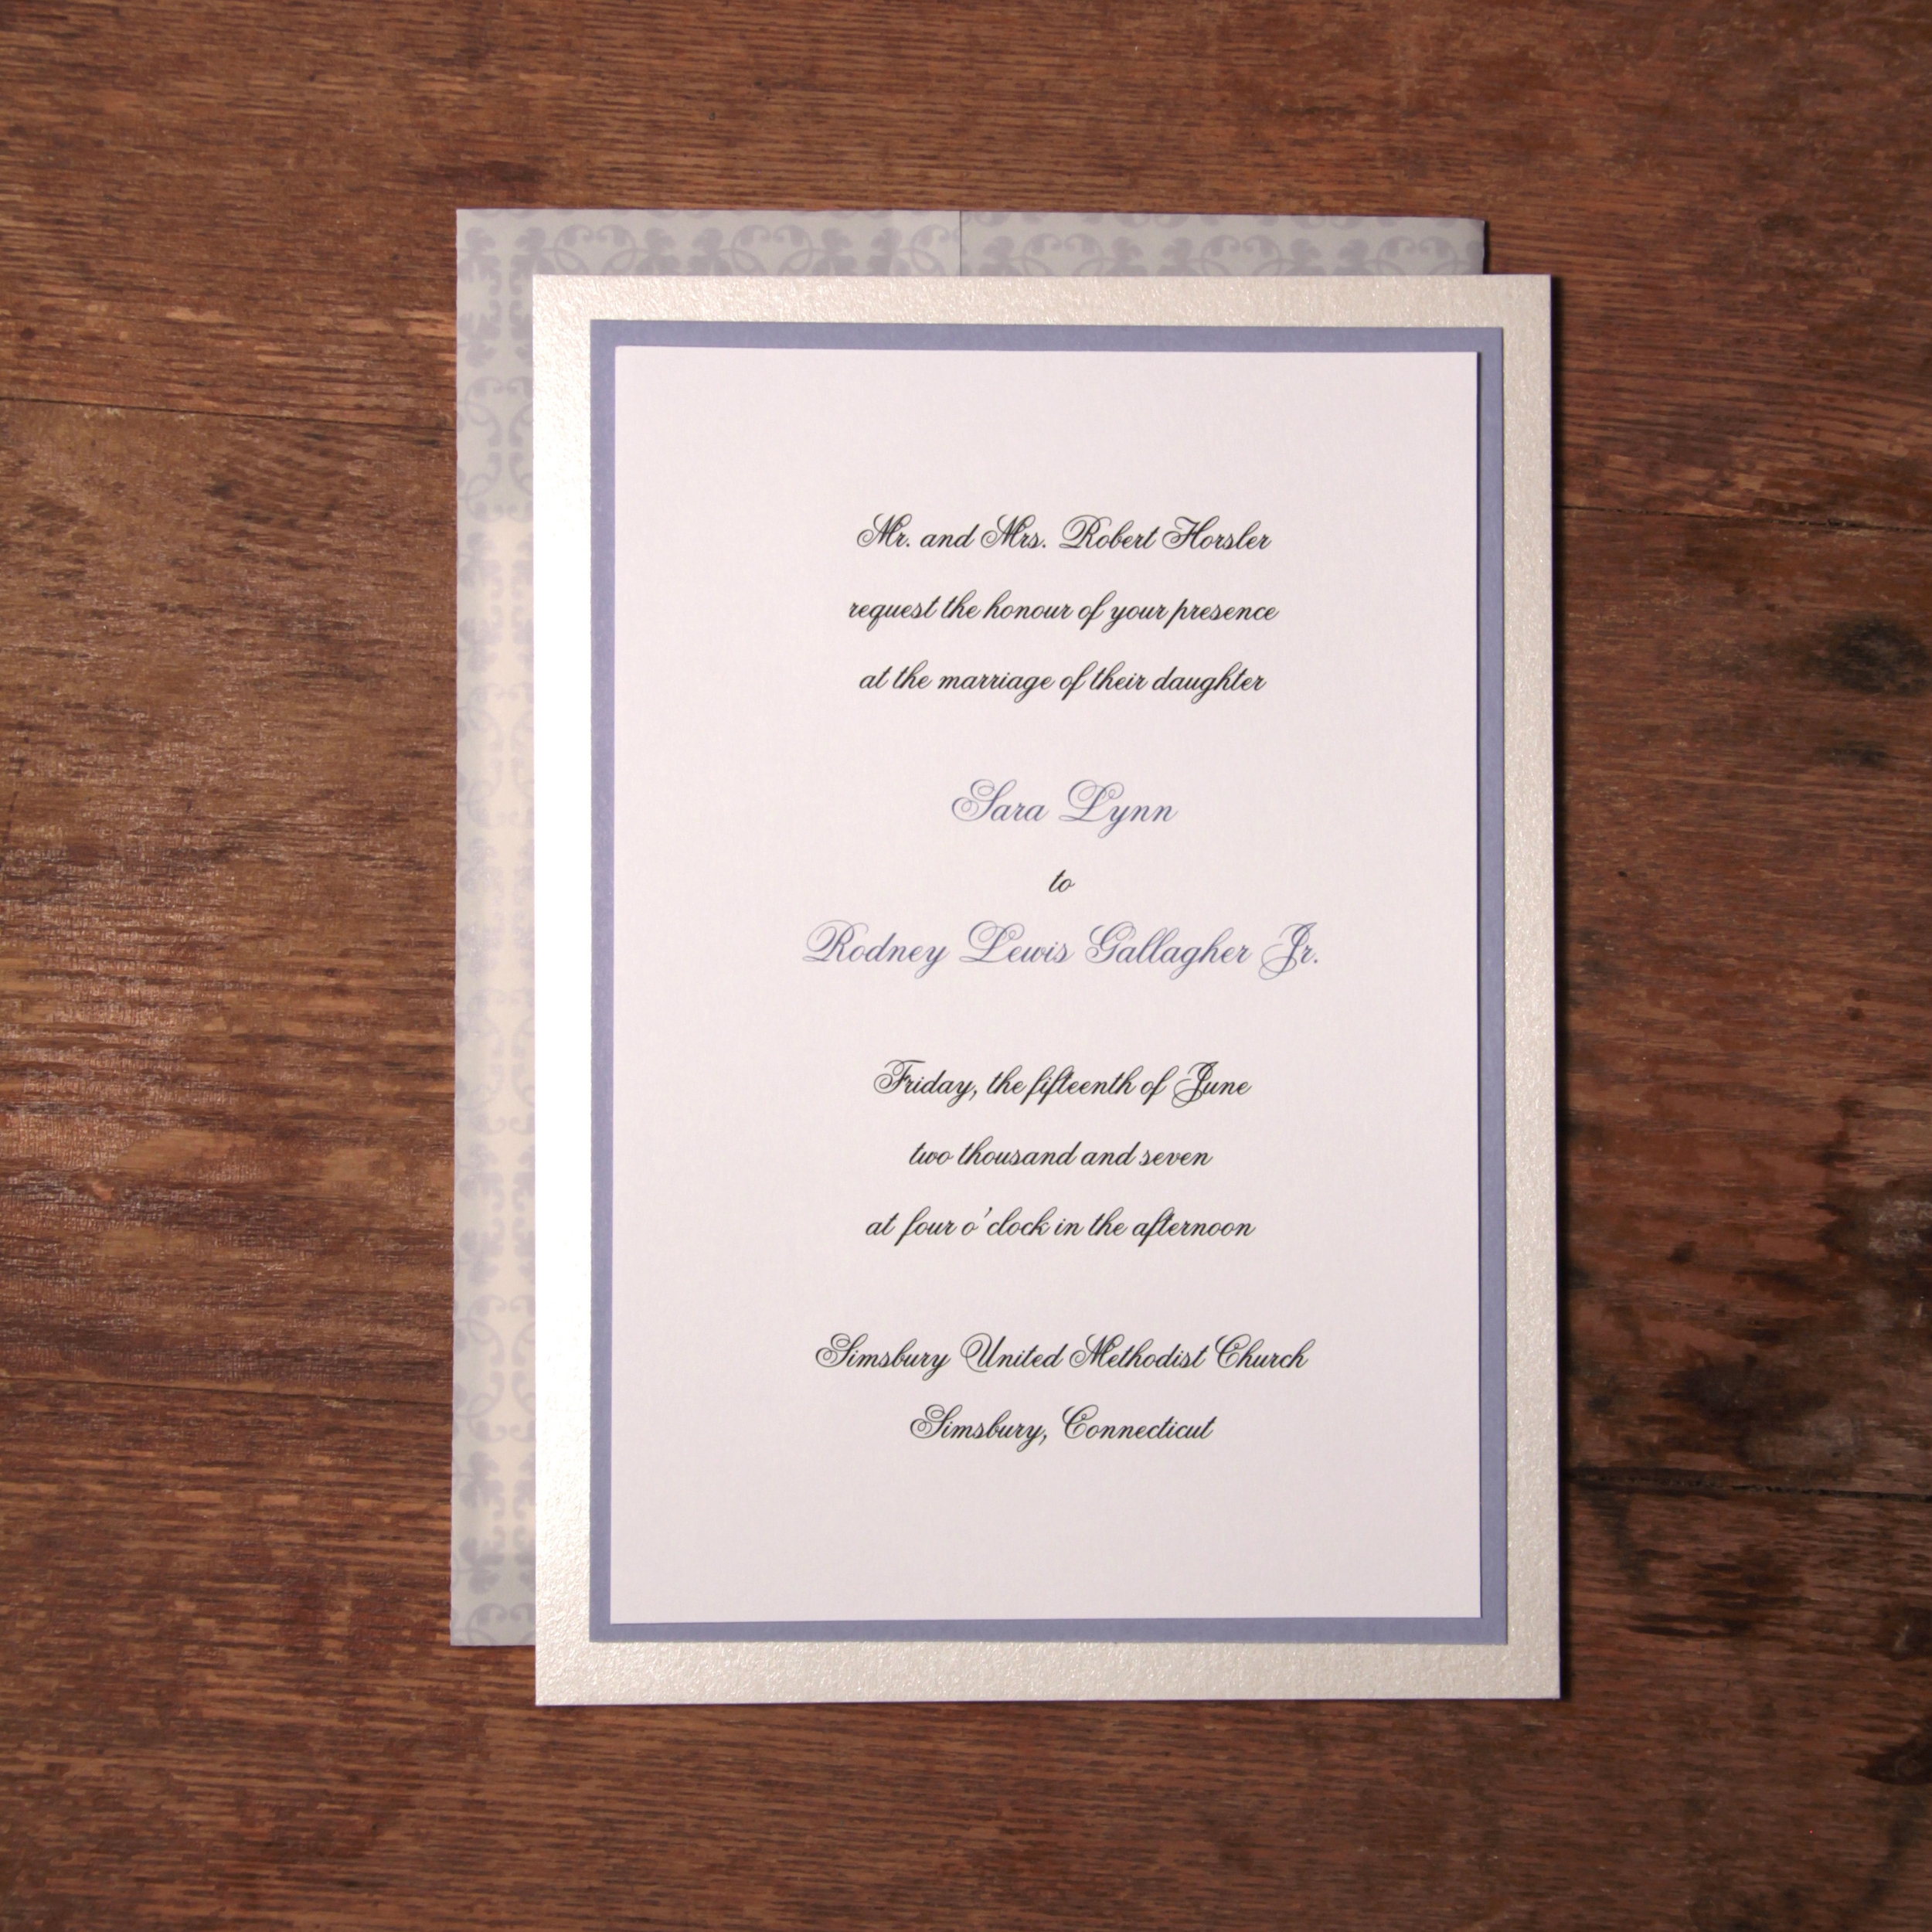 Mr. and Mrs. Robert Horsler
request the honour of your presence
at the marriage of their daughter
Sara Lynn
to
Rodney Lewis Gallagher Jr.
Friday, the fifteenth of June
two thousand and seven
at four o'clock in the afternoon
Simsbury United Methodist Church
Simsbury, Connecticut